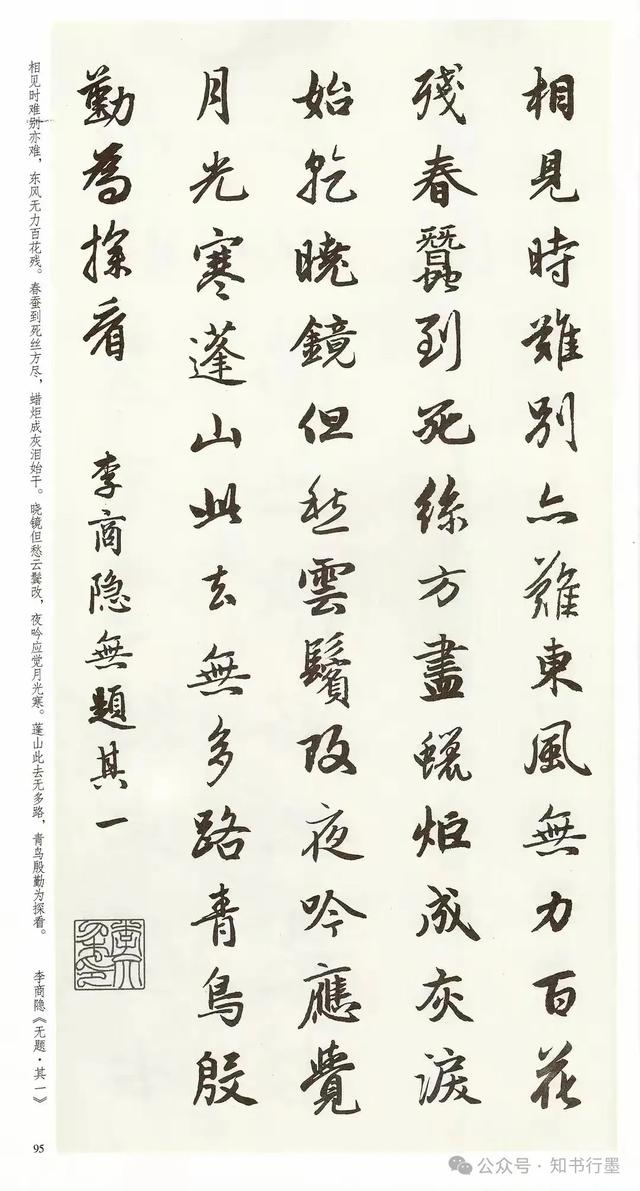 相見時難別亦難東風無力百花
殘春蠶到死絲方盡蠟炬成灰淚
始乾曉鏡但愁雲鬢改夜吟應覺
月光寒蓬山此去無多路青鳥殷
勤為探看
李商隐無題其一
相见时难别亦难，东风无力百花残。春蚕到死丝方尽，蜡炬成灰泪始干。晓镜但愁云鬓改，夜吟应觉月光寒。蓬山此去无多路，青鸟殷勤为探看。
李商隐《无题·其一》
95
公众号·知书行墨